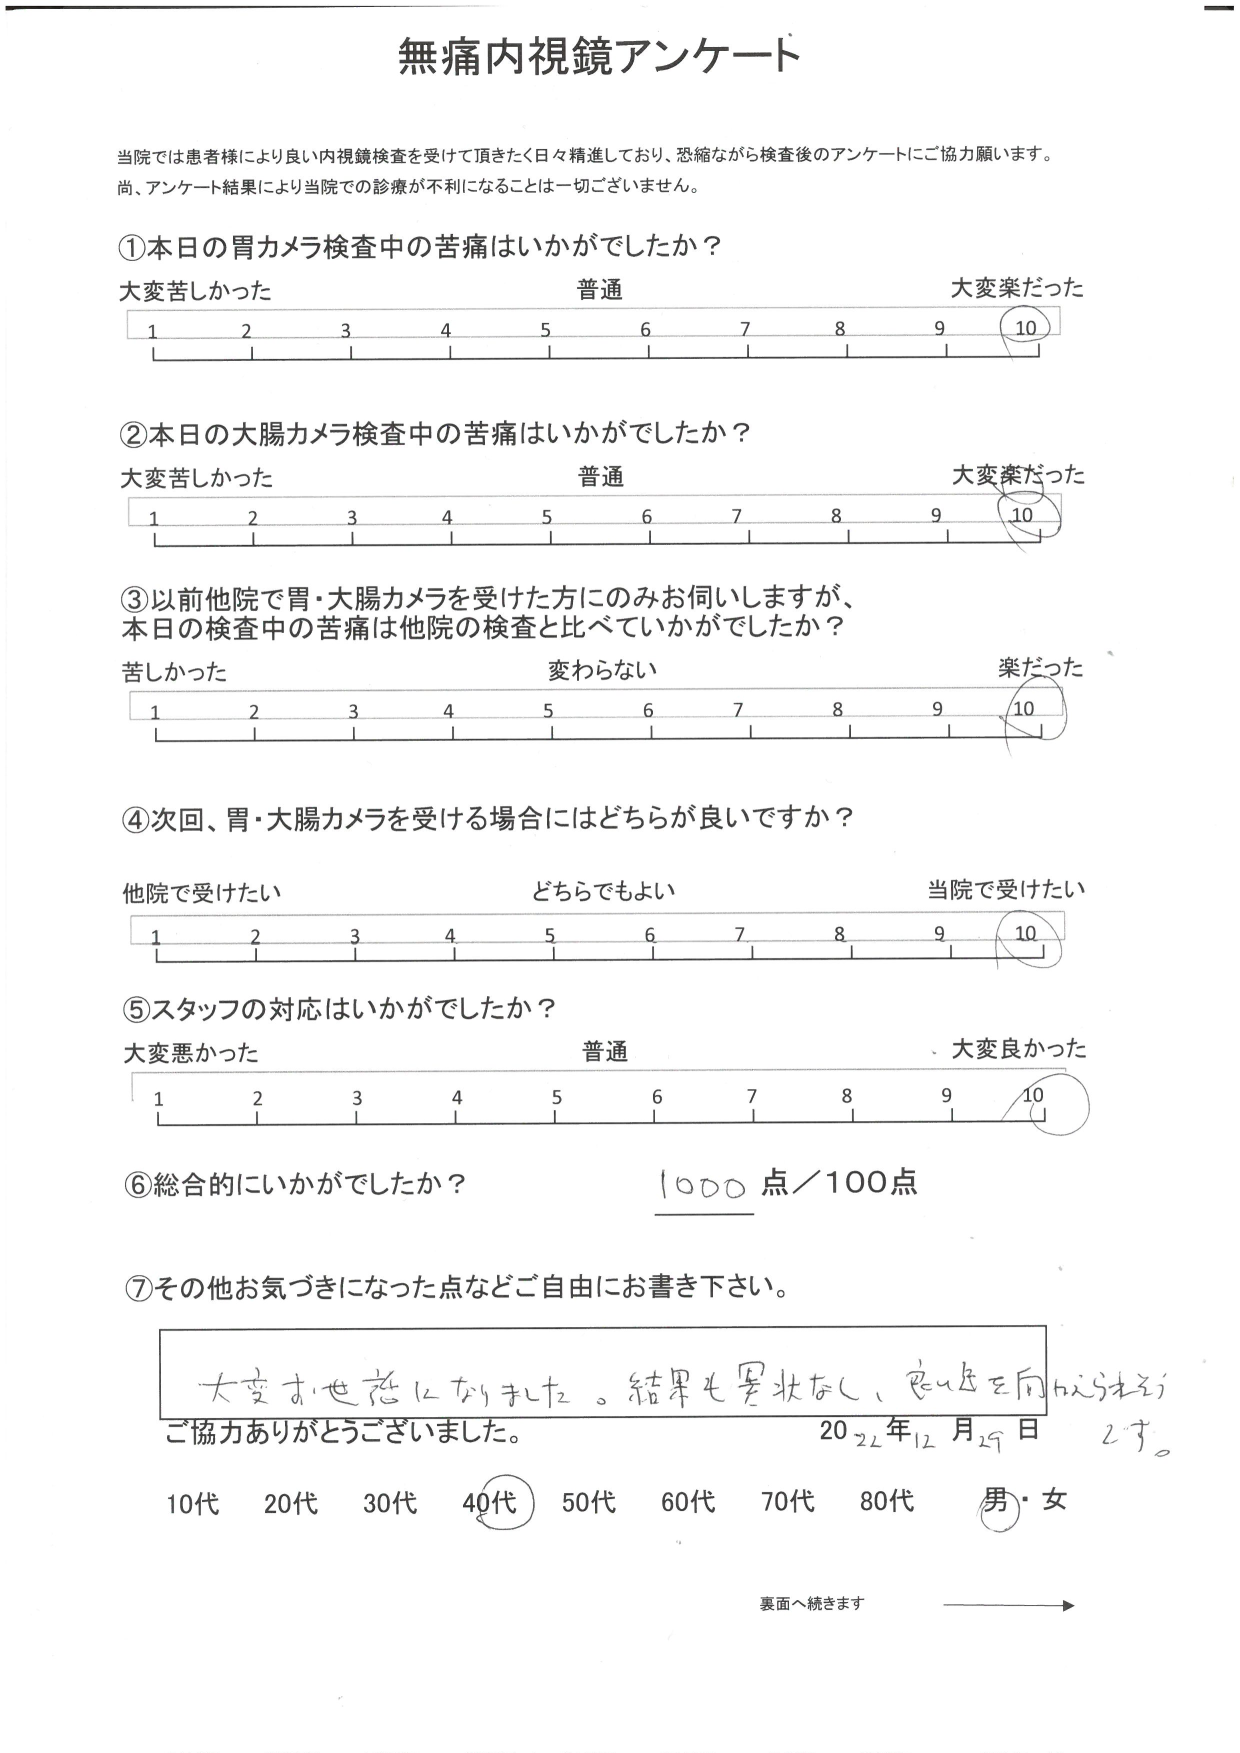 無痛内視鏡アンケート
当院では患者様により良い内視鏡検査を受けて頂きたく日々精進しており、恐縮ながら検査後のアンケートにご協力願います。
尚、アンケート結果により当院での診療が不利になることは一切ございません。
①本日の胃カメラ検査中の苦痛はいかがでしたか？
大変苦しかった 普通 大変楽だった
1 2 3 4 5 6 7 8 9 10
②本日の大腸カメラ検査中の苦痛はいかがでしたか？
大変苦しかった 普通 大変楽だった
1 2 3 4 5 6 7 8 9 10
③以前他院で胃・大腸カメラを受けた方にのみお伺いしますが、
本日の検査中の苦痛は他院の検査と比べていかがでしたか？
苦しかった 変わらない 楽だった
1 2 3 4 5 6 7 8 9 10
④次回、胃・大腸カメラを受ける場合にはどちらが良いですか？
他院で受けたい どちらでもよい 当院で受けたい
1 2 3 4 5 6 7 8 9 10
⑤スタッフの対応はいかがでしたか？
大変悪かった 普通 大変良かった
1 2 3 4 5 6 7 8 9 10
⑥総合的にいかがでしたか？ 1000 点／100点
⑦その他お気づきになった点などご自由にお書き下さい。
大変お世話になりました。結果も異状なし、良い年を向かえられそう
です。
ご協力ありがとうございました。 2022年12月29日
10代 20代 30代 40代 50代 60代 70代 80代 男・女
裏面へ続きます